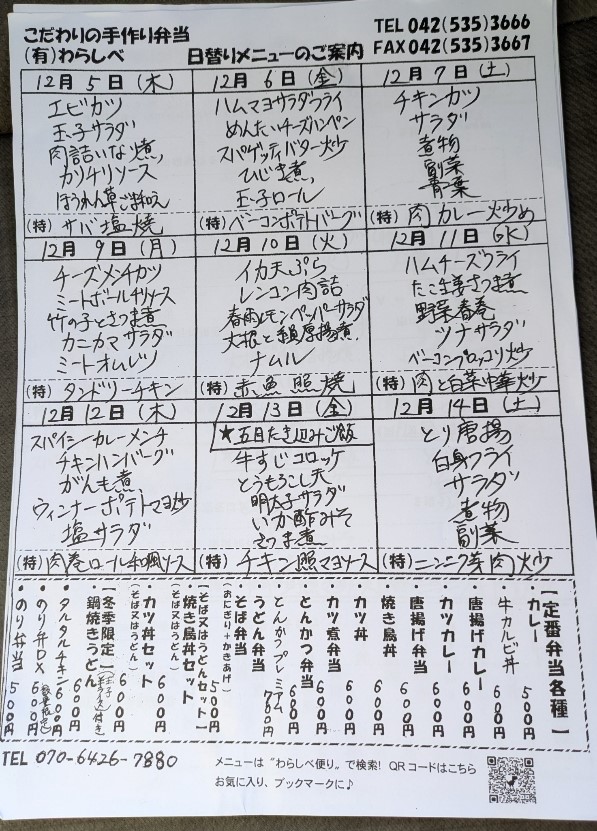 こだわりの手作り弁当
TEL 042(535)3666
(有)わらしべ
日替りメニューのご案内
FAX 042(535)3667
12月 5日 (木)
エビカツ
玉子サラダ
肉詰いなり煮
カツチリソース
ほうれん草ごま和え
(特) サバ塩焼
12月 6日 (金)
ハムマヨサラダフライ
めんたいチーズハンペン
スパゲッティバター炒
ひじき煮
玉子ロール
(特) ベーコンポテトバーグ
12月 7日 (土)
チキンカツ
サラダ
煮物
副菜
青菜
(特) 肉カレー炒め
12月 9日 (月)
チーズメンチカツ
ミートボールチリソース
竹の子とさつま煮
カニカマサラダ
ミートオムレツ
(特) タンドリーチキン
12月 10日 (火)
イカ天ぷら
レンコン肉詰
春雨レモンペーパーサラダ
大根と絹厚揚煮
ナムル
(特) 赤魚照焼
12月 11日 (水)
ハムチーズフライ
たこ生姜さつま煮
野菜春巻
ツナサラダ
ベーコンブロッコリ炒
(特) 肉と白菜中華炒
12月 12日 (木)
スパイシーカレーメンチ
チキンハンバーグ
がんも煮
ウィンナーポテトマヨ炒
塩サラダ
(特) 肉巻ロール和風ソース
12月 13日 (金)
★五目たき込みご飯
牛すじコロッケ
とうもろこし天
明太子サラダ
いか酢みそ
さつま煮
(特) チキン照マヨソース
12月 14日 (土)
とり唐揚
白身フライ
サラダ
煮物
副菜
(特) ニンニク芽肉炒
【定番弁当各種】
・カレー 500円
・牛カルビ丼 600円
・唐揚げカレー 600円
・カツカレー 600円
・唐揚げ弁当 600円
・焼き鳥丼 600円
・カツ丼 600円
・カツ煮弁当 600円
・とんかつ弁当 600円
・とんかつプレミアム 700円
・うどん弁当
・そば弁当 500円
(おにぎり+かきあげ)
【そば又はうどんセット】
・焼き鳥丼セット 600円
(そば又はうどん)
・カツ丼セット 600円
(そば又はうどん)
【冬季限定】(玉子・半ライス)付き
・鍋焼きうどん 600円
・タルタルチキン 600円
・のり弁DX (数量限定) 600円
・のり弁当 500円
TEL 070-6426-7880
メニューは “わらしべ便り” で検索! QRコードはこちら
お気に入り、ブックマークに♪